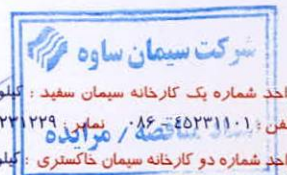 شرکت سیمان ساوه
واحد شماره یک کارخانه سیمان سفید : کیلو
فن : ٤٥٢٣١١٠١-٠٨٦ نمابر :
مناقصه / مزایده
واحد شماره دو کارخانه سیمان خاکستری : کیلو